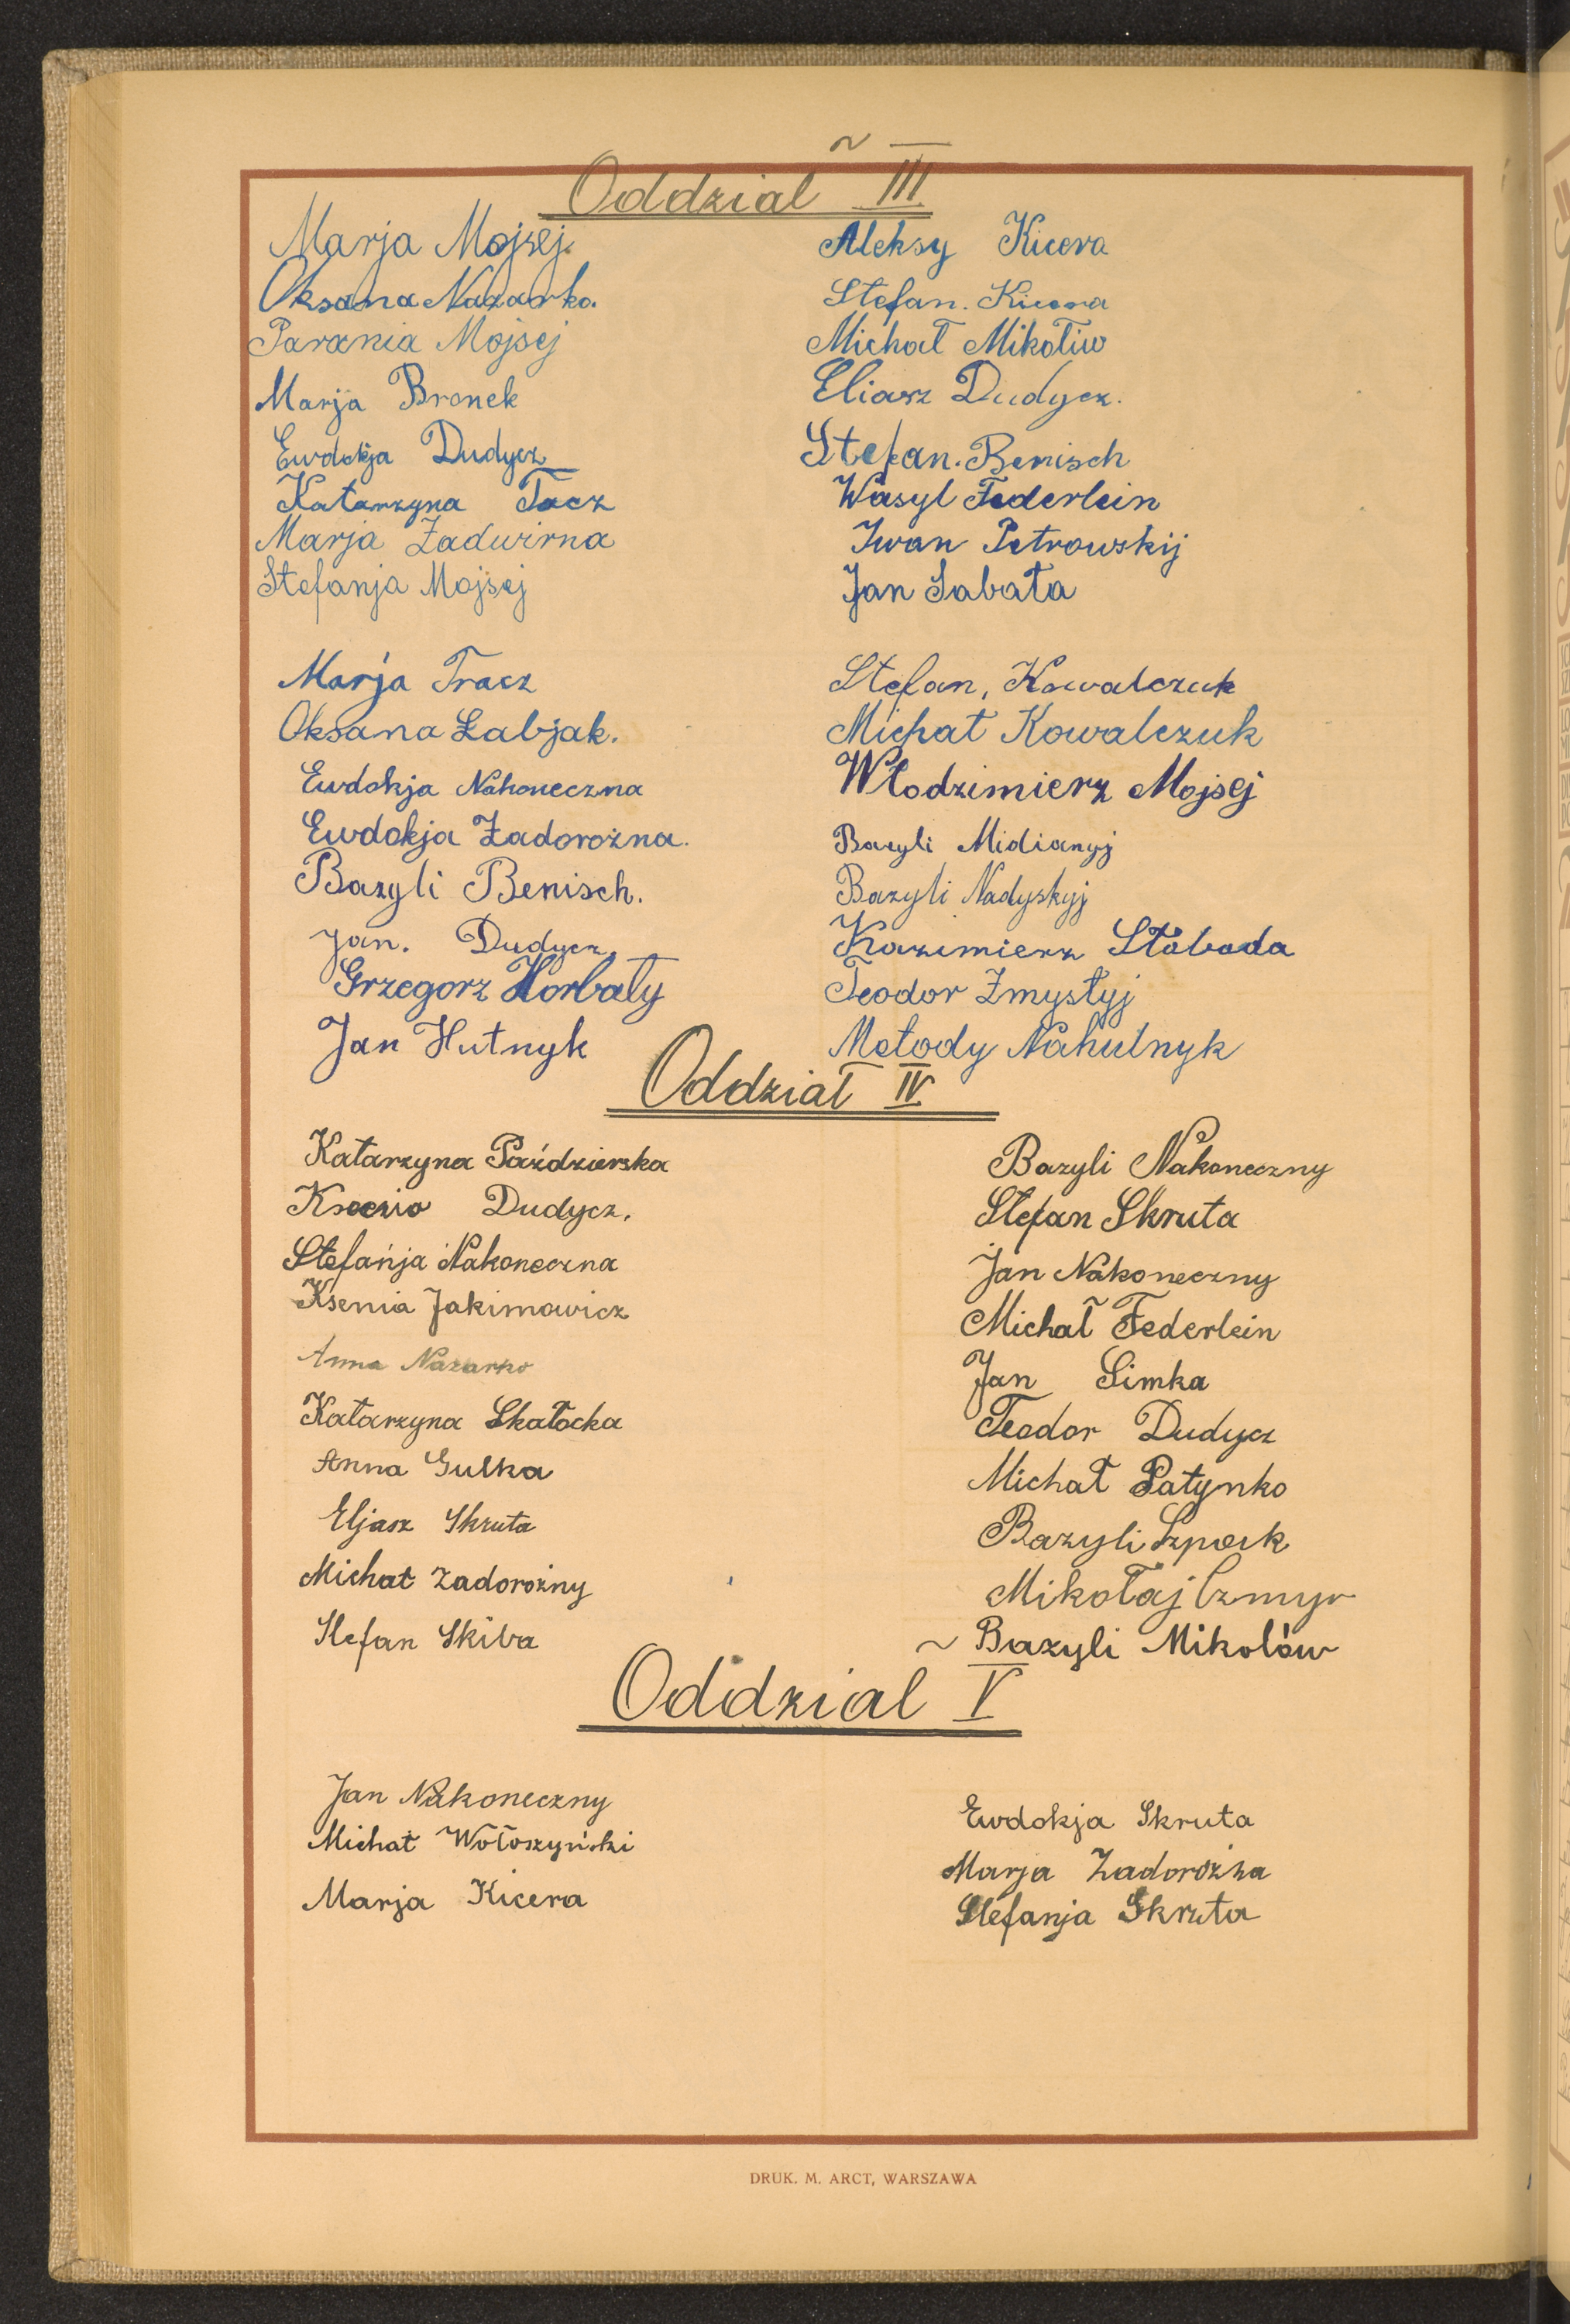 Oddział III
Marja Mojsej.
Oksana Nazarko.
Parania Mojsej
Marja Bronek
Ewdokja Dudycz
Katarzyna Tacz
Marja Zadwirna
Stefanja Mojsej
Marja Tracz
Oksana Łabjak.
Ewdokja Nakoneczna
Ewdokja Zadorożna.
Bazyli Benisch.
Jan. Dudycz.
Grzegorz Horbaty
Jan Hutnyk
Aleksy Kicera
Stefan. Kicera
Michał Mikołiw
Eliasz Dudycz.
Stefan. Benisch
Wasyl Federlein
Iwan Petrowskij
Jan Sabata
Stefan, Kowalczuk
Michał Kowalczuk
Włodzimierz Mojsej
Bazyli Midianyj
Bazyli Nadyskyj
Kazimierz Słaboda
Teodor Zmysłyj
Metody Nahulnyk
Oddział IV
Katarzyna Paździerska
Dudycz.
Stefanja Nakoneczna
Ksenia Jakimowicz
Anna Nazarko
Katarzyna Skałocka
Anna Gulka
Eljasz Skruta
Michał Zadorożny
Stefan Skiba
Bazyli Nakoneczny
Stefan Skruta
Jan Nakoneczny
Michał Federlein
Jan Simka
Teodor Dudycz
Michał Patynko
Bazyli Szpack
Mikołaj Czmyr
Bazyli Mikołów
Oddział V
Jan Nakoneczny
Michał Wołoszyński
Marja Kicera
Ewdokja Skruta
Marja Zadorożna
Stefanja Skruta
DRUK. M. ARCT, WARSZAWA